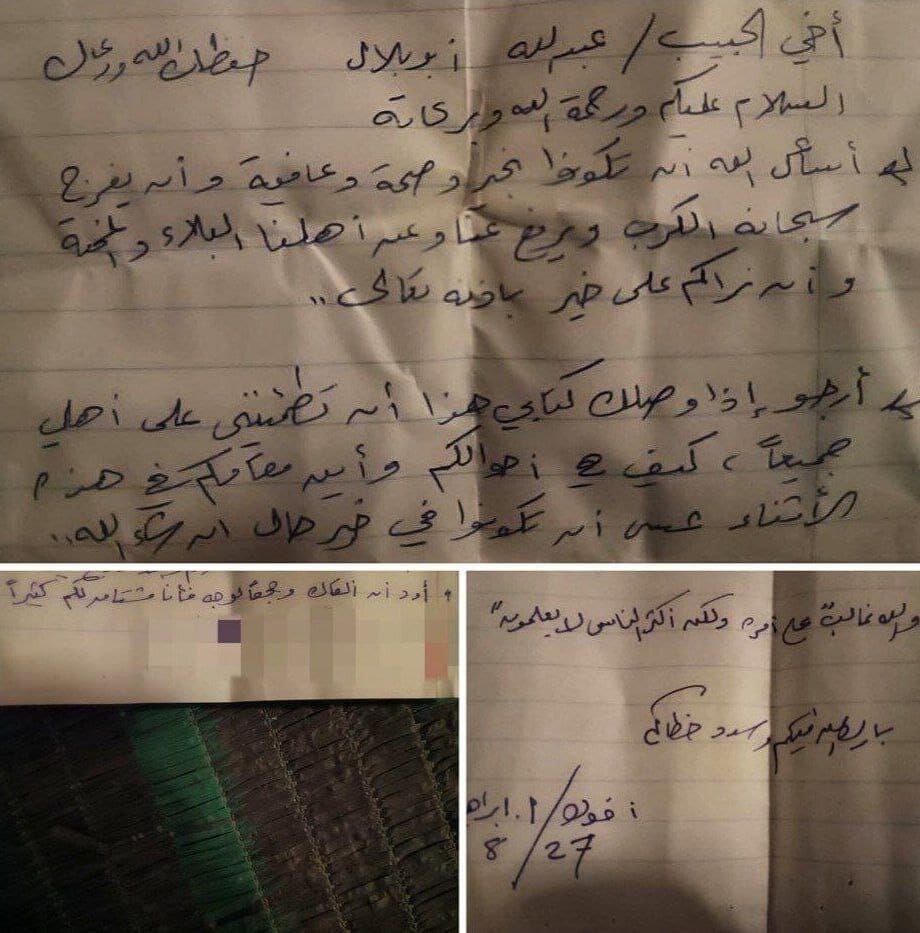 أخي الحبيب / عبد الله أبو بلال حفظك الله ورعاك
السلام عليكم ورحمة الله وبركاته
أسأل الله أن تكونوا بخير وصحة وعافية وأن يفرج
سبحانه الكرب ويرفع عنا وعن أهلنا البلاء والمحنة
وأن نراكم على خير بإذنه تعالى ..
أرجو إذا وصلك كتابي هذا أن تطمئنني على أهلي
جميعاً، كيف هي أحوالكم وأين مقامكم في هذه
الأثناء عسى أن تكونوا في خير حال ان شاء الله ..
أود أن ألقاك وجهاً لوجه فأنا مشتاق لكم كثيراً
والله غالبٌ على أمره ولكن أكثر الناس لا يعلمون"
بارك الله فيكم وسدد خطاكم
أخوك / ا. ابراه
27 / 8